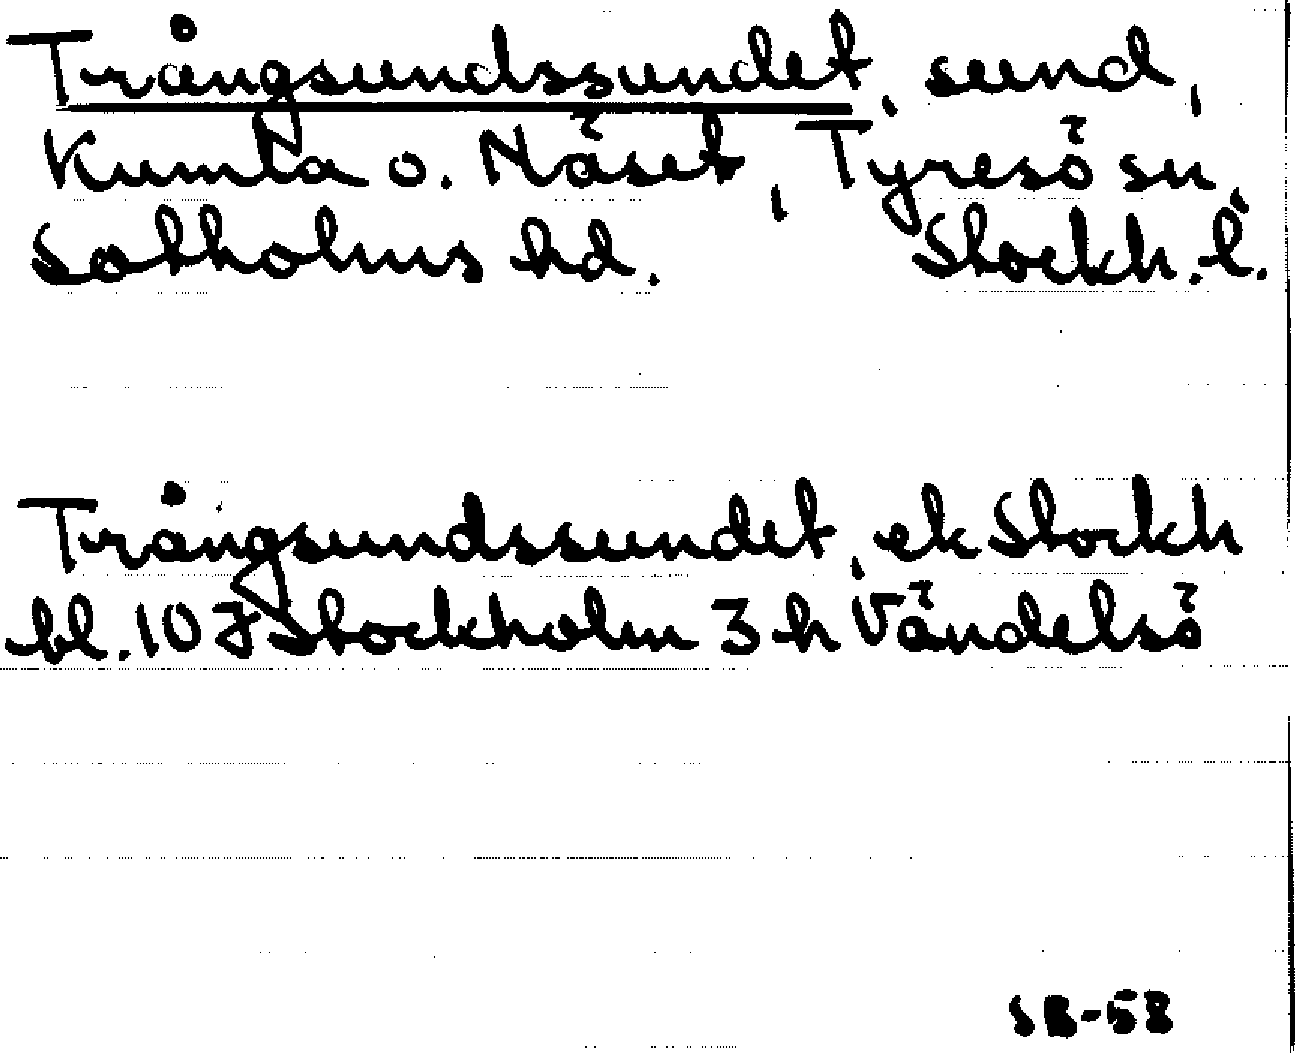 Trångsundssundet, sund,
Kumla o. Näset, Tyresö sn,
Sotholms hd. Stockh. l.
Trångsundssundet, ek Stockh
bl. 10 J Stockholm 3 h Vändelsö
SB-58